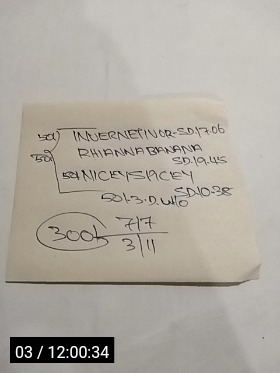 50) INVERNETIVOR-SD17.06
50) RHIANNA BANANA
SD.19.45
50) NICEYSIACEY
SD.10.38
501-3.D. W/O
300b 7/7
3/11
03 / 12:00:34